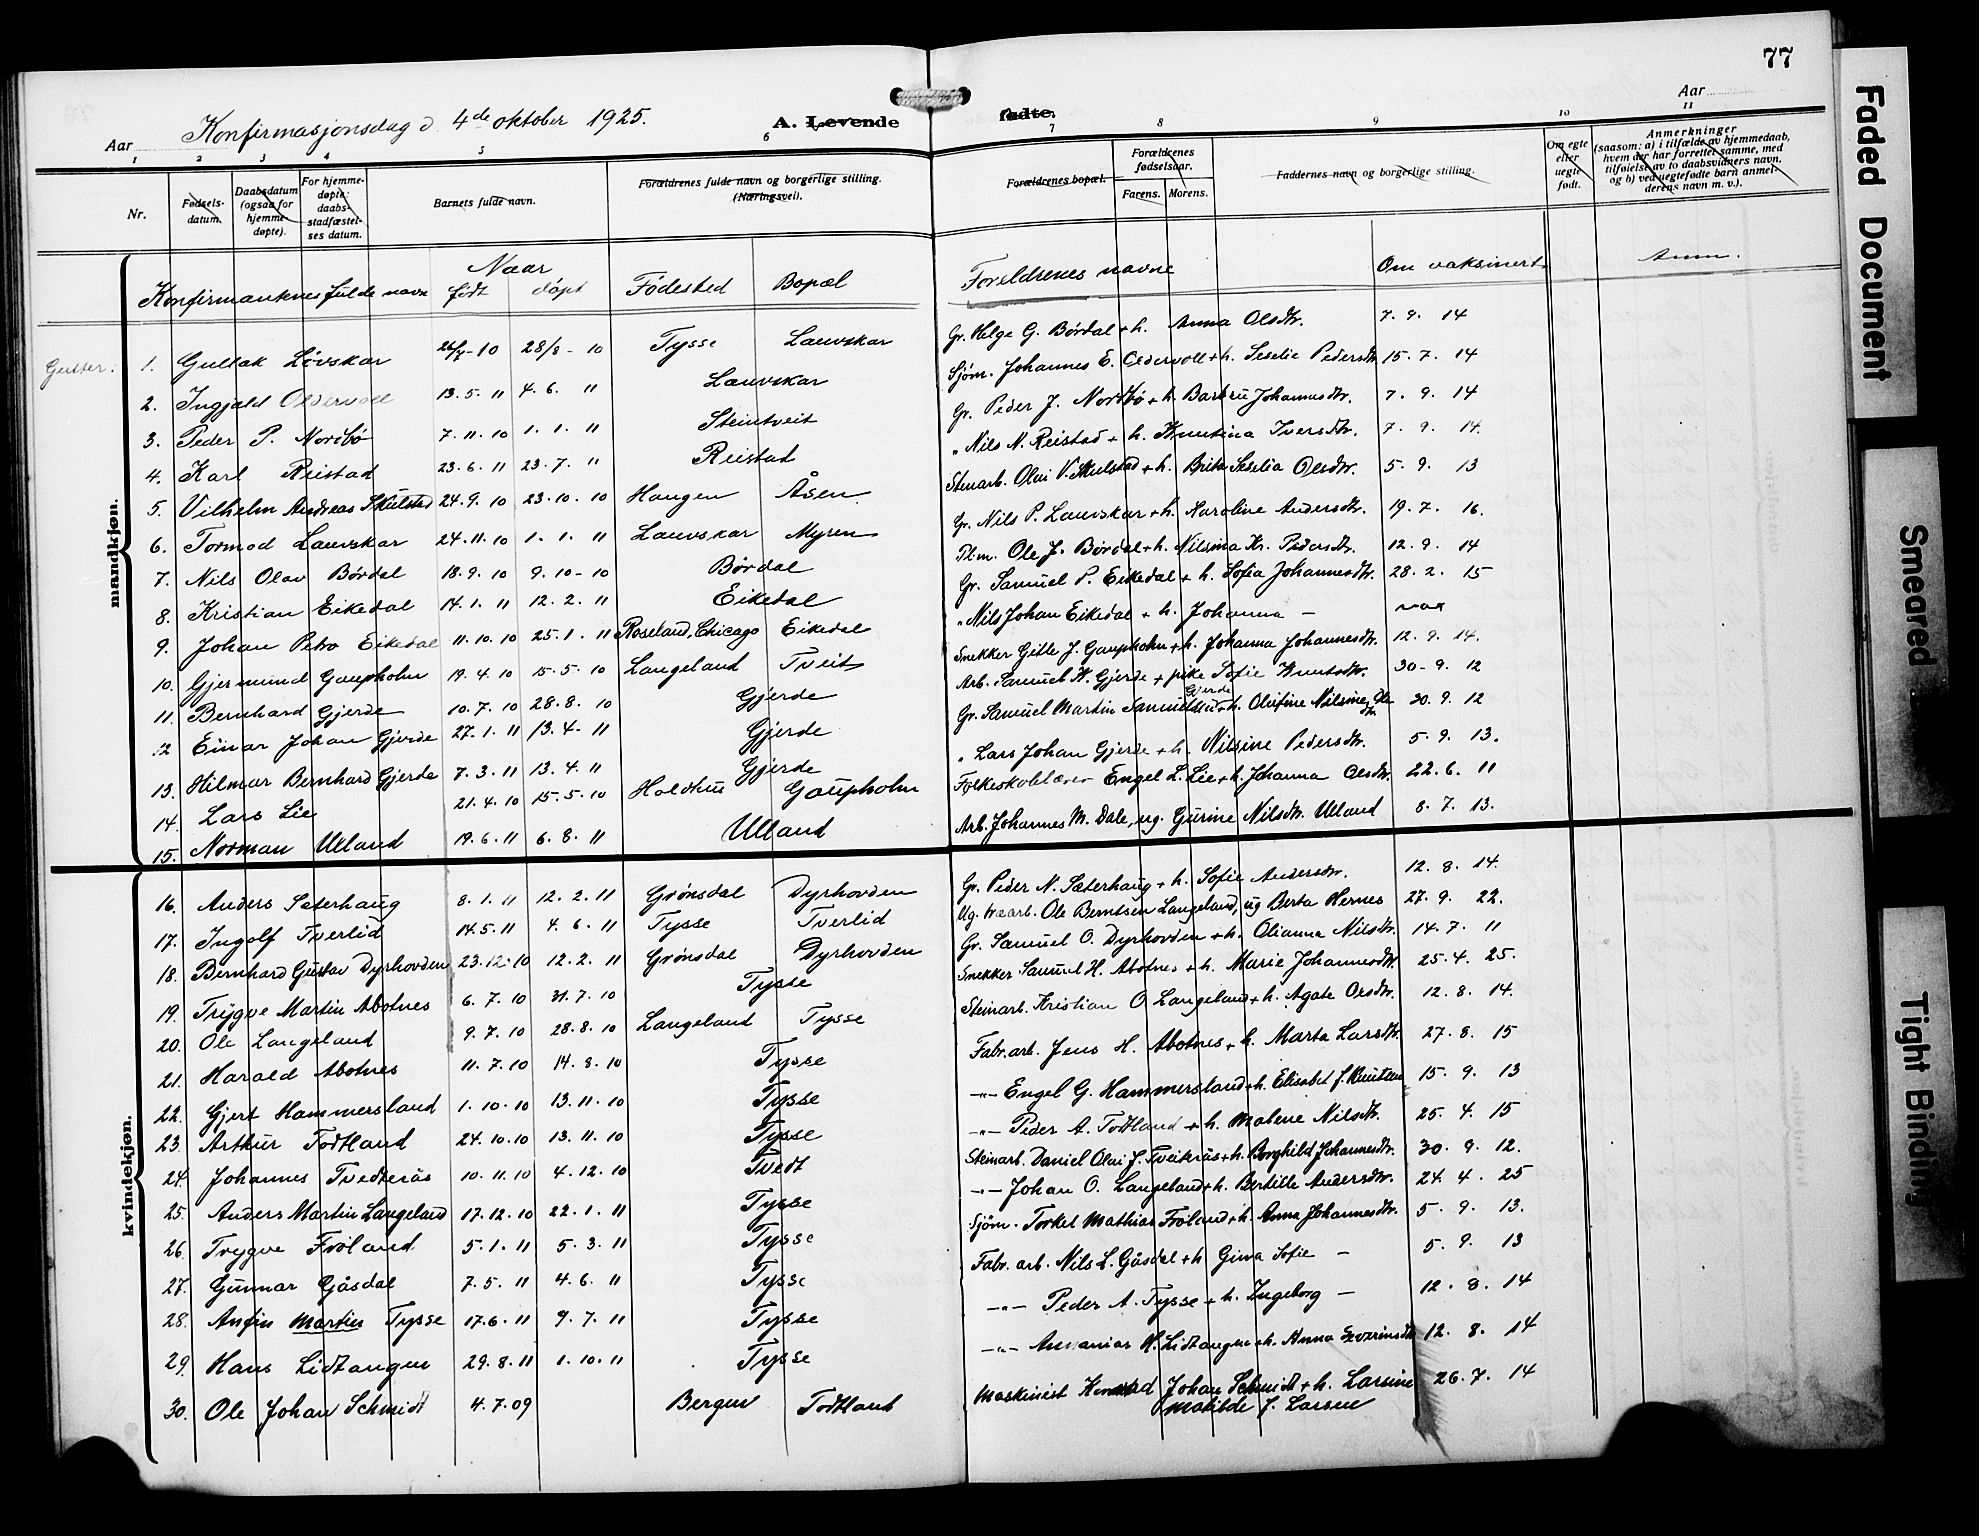 77
Konfirmasjonsdag d. 4de oktober 1925.
Aar A. Levende fødte. Aar
1 2 3 4 5 6 7 8 9 10 11
Nr. Fødsels-datum. Daabsdatum (ogsaa for hjemme-døpte). For hjemme-døpte: daabs-stadfæstel-ses datum. Barnets fulde navn. Forældrenes fulde navn og borgerlige stilling. (Næringsvei). Forældrenes bopæl. Forældrenes fødselsaar. Farens. Morens. Faddernes navn og borgerlige stilling. Om egte eller uegte født. Anmerkninger (saasom: a) i tilfælde av hjemmedaab, hvem der har forrettet samme, med tilføielse av to daabsvidners navn, og b) ved uegtefødte barn anmel-derens navn m. v.).
mandkjøn.
kvindekjøn.
Konfirmantenes fulde navn Naar født døpt Fødested Bopæl Foreldrenes navne Om vaksinert Anm.
Gutter:
1. Gullak Lövskar 26/7-10 28/8-10 Tysse Lauvskar Gr. Helge G. Børdal + h. Anna Olsdtr. 7. 9. 14
2. Ingjald Oldervoll 13.5.11 4.6. 11 Lauvskar Sjøm. Johannes E. Oldervoll + h. Seselie Pedersdtr. 15. 7. 14
3. Peder P. Nordbø 7.11.10 1.1. 11 Steintveit Gr. Peder J. Nordbø + h. Barbru Johannesdtr. 7. 9. 14
4. Karl Reistad 23.6.11 23.7. 11 Reistad " Nils N. Reistad + h. Knutina Iversdtr. 7. 9. 14.
5. Vilhelm Andreas Skulstad 24.9.10 23.10.10 Haugen Åsen Stenarb. Olai V. Skulstad + h. Brita Seselia Olsdtr. 5. 9. 13
6. Tormod Lauvskar 24.11.10 1.1. 11 Lauvskar Myren Gr. Nils P. Lauvskar + h. Karoline Andersdtr. 19. 7. 16.
7. Nils Olav Børdal 18.9.10 9.10-10 Børdal Plm. Ole J. Børdal + h. Nilsina Kr. Pedersdtr. 12. 9. 14
8. Kristian Eikedal 14.1.11 12.2. 11 Eikedal Gr. Samuel P. Eikedal + h. Sofia Johannesdtr. 28. 2. 15
9. Johan Petro Eikedal 11.10.10 25.1. 11 Roseland, Chicago Eikedal " Nils Johan Eikedal + h. Johanna — vax
10. Gjermund Gaupholm 19.4.10 15.5.10 Langeland Tveit Snekker Gitle J. Gaupholm + h. Johanna Johannesdtr. 12. 9. 14.
11. Bernhard Gjerde 10.7.10 28.8.10 Gjerde Arb. Samuel K. Gjerde + pike Sofie Knutsdtr. 30-9. 12
12 Einar Johan Gjerde 27.1.11 13.4-11 Gjerde Gr. Samuel Martin Samuelsen Gjerde + h. Olufine Nilsine Olsdtr 30. 9. 12
13. Hilmar Bernhard Gjerde 7.3.11 13.4.11 Gjerde " Lars Johan Gjerde + h. Nilsine Pedersdtr. 5. 9. 13.
14. Lars Lie 21.4.10 15.5.10 Holdhus Gaupholm Folkeskolelærer Engel L. Lie + h. Johanna Olsdtr. 22. 6. 11
15. Norman Ulland 19.6.11 6.8. 11 Ulland Arb. Johannes M. Dale, ug. Gurine Nilsdtr. Ulland 8. 7. 13.
16. Anders Sæterhaug 8.1.11 12.2.11 Grønsdal Dyrhovden Gr. Peder N. Sæterhaug + h. Sofie Andersdtr. 12. 8. 14.
17. Ingolf Tverlid 14.5.11 4.6. 11 Tysse Tverlid Ug. træarb. Ole Berntsen Langeland, ug Berta Hernes 27. 9. 22.
18. Bernhard Gustav Dyrhovden 23.12.10 12.2. 11 Grønsdal Dyrhovden Gr. Samuel O. Dyrhovden + h. Olianna Nilsdtr. 14. 7. 11
19. Trygve Martin Abotnes 6.7.10 31.7.10 Tysse Snekker Samuel H. Abotnes + h. Marie Johannesdtr. 25. 4. 25.
20. Ole Langeland 9.7.10 28.8.10 Langeland Tysse Steinarb. Kristian O Langeland + h. Agate Olsdtr. 12. 8. 14.
21. Harald Abotnes 11.7.10 14.8.10 Tysse Fabr. arb. Jens H. Abotnes + h. Marta Larsdtr. 27. 8. 15
22. Gjert Hammersland 1.10.10 13.11.10 Tysse —"— Engel G. Hammersland + h. Elisabet J. Knutsen 15. 9. 13
23. Arthur Todtland 24.10.10 13.11.10 Tysse —"— Peder A. Todtland + h. Malene Nilsdtr. 25. 4. 15
24. Johannes Tvedterås 10.11.10 4.12.10 Tvedt Steinarb. Daniel Olai J. Tveiterås + h. Borghild Johannesdtr. 30. 9. 12.
25. Anders Martin Langeland 17.12.10 22.1.11 Tysse —"— Johan O. Langeland + h. Bertille Andersdtr. 24. 4. 25
26. Trygve Frøland 5.1.11 5.3.11 Tysse Sjøm. Torkel Mathias Frøland + h. Anna Johannesdtr. 5. 9. 13.
27. Gunnar Gåsdal 7.5.11 4.6. 11 Tysse Fabr. arb. Nils L. Gåsdal + h Gina Sofie — 5. 9. 13
28. Anfin Martin Tysse 17.6.11 9.7.11 Tysse —"— Peder A. Tysse + h. Ingeborg — 12. 8. 14
29. Hans Lidtangen 29.8.11 1.10.11 Tysse —"— Annanias H. Lidtangen + h. Anna Severinsdtr 12. 8. 14
30. Ole Johan Schmidt 4.7.09 Bergen Todtland Maskinist Johan Schmidt + h. Larsine Matilde J. Larsen 26. 7. 14
Faded Document
Smeared
Tight Binding